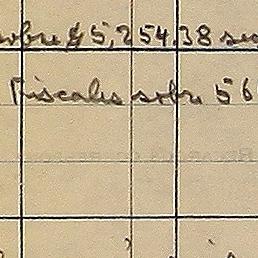 sobre $5,254.38 su
Fiscales sobre 56